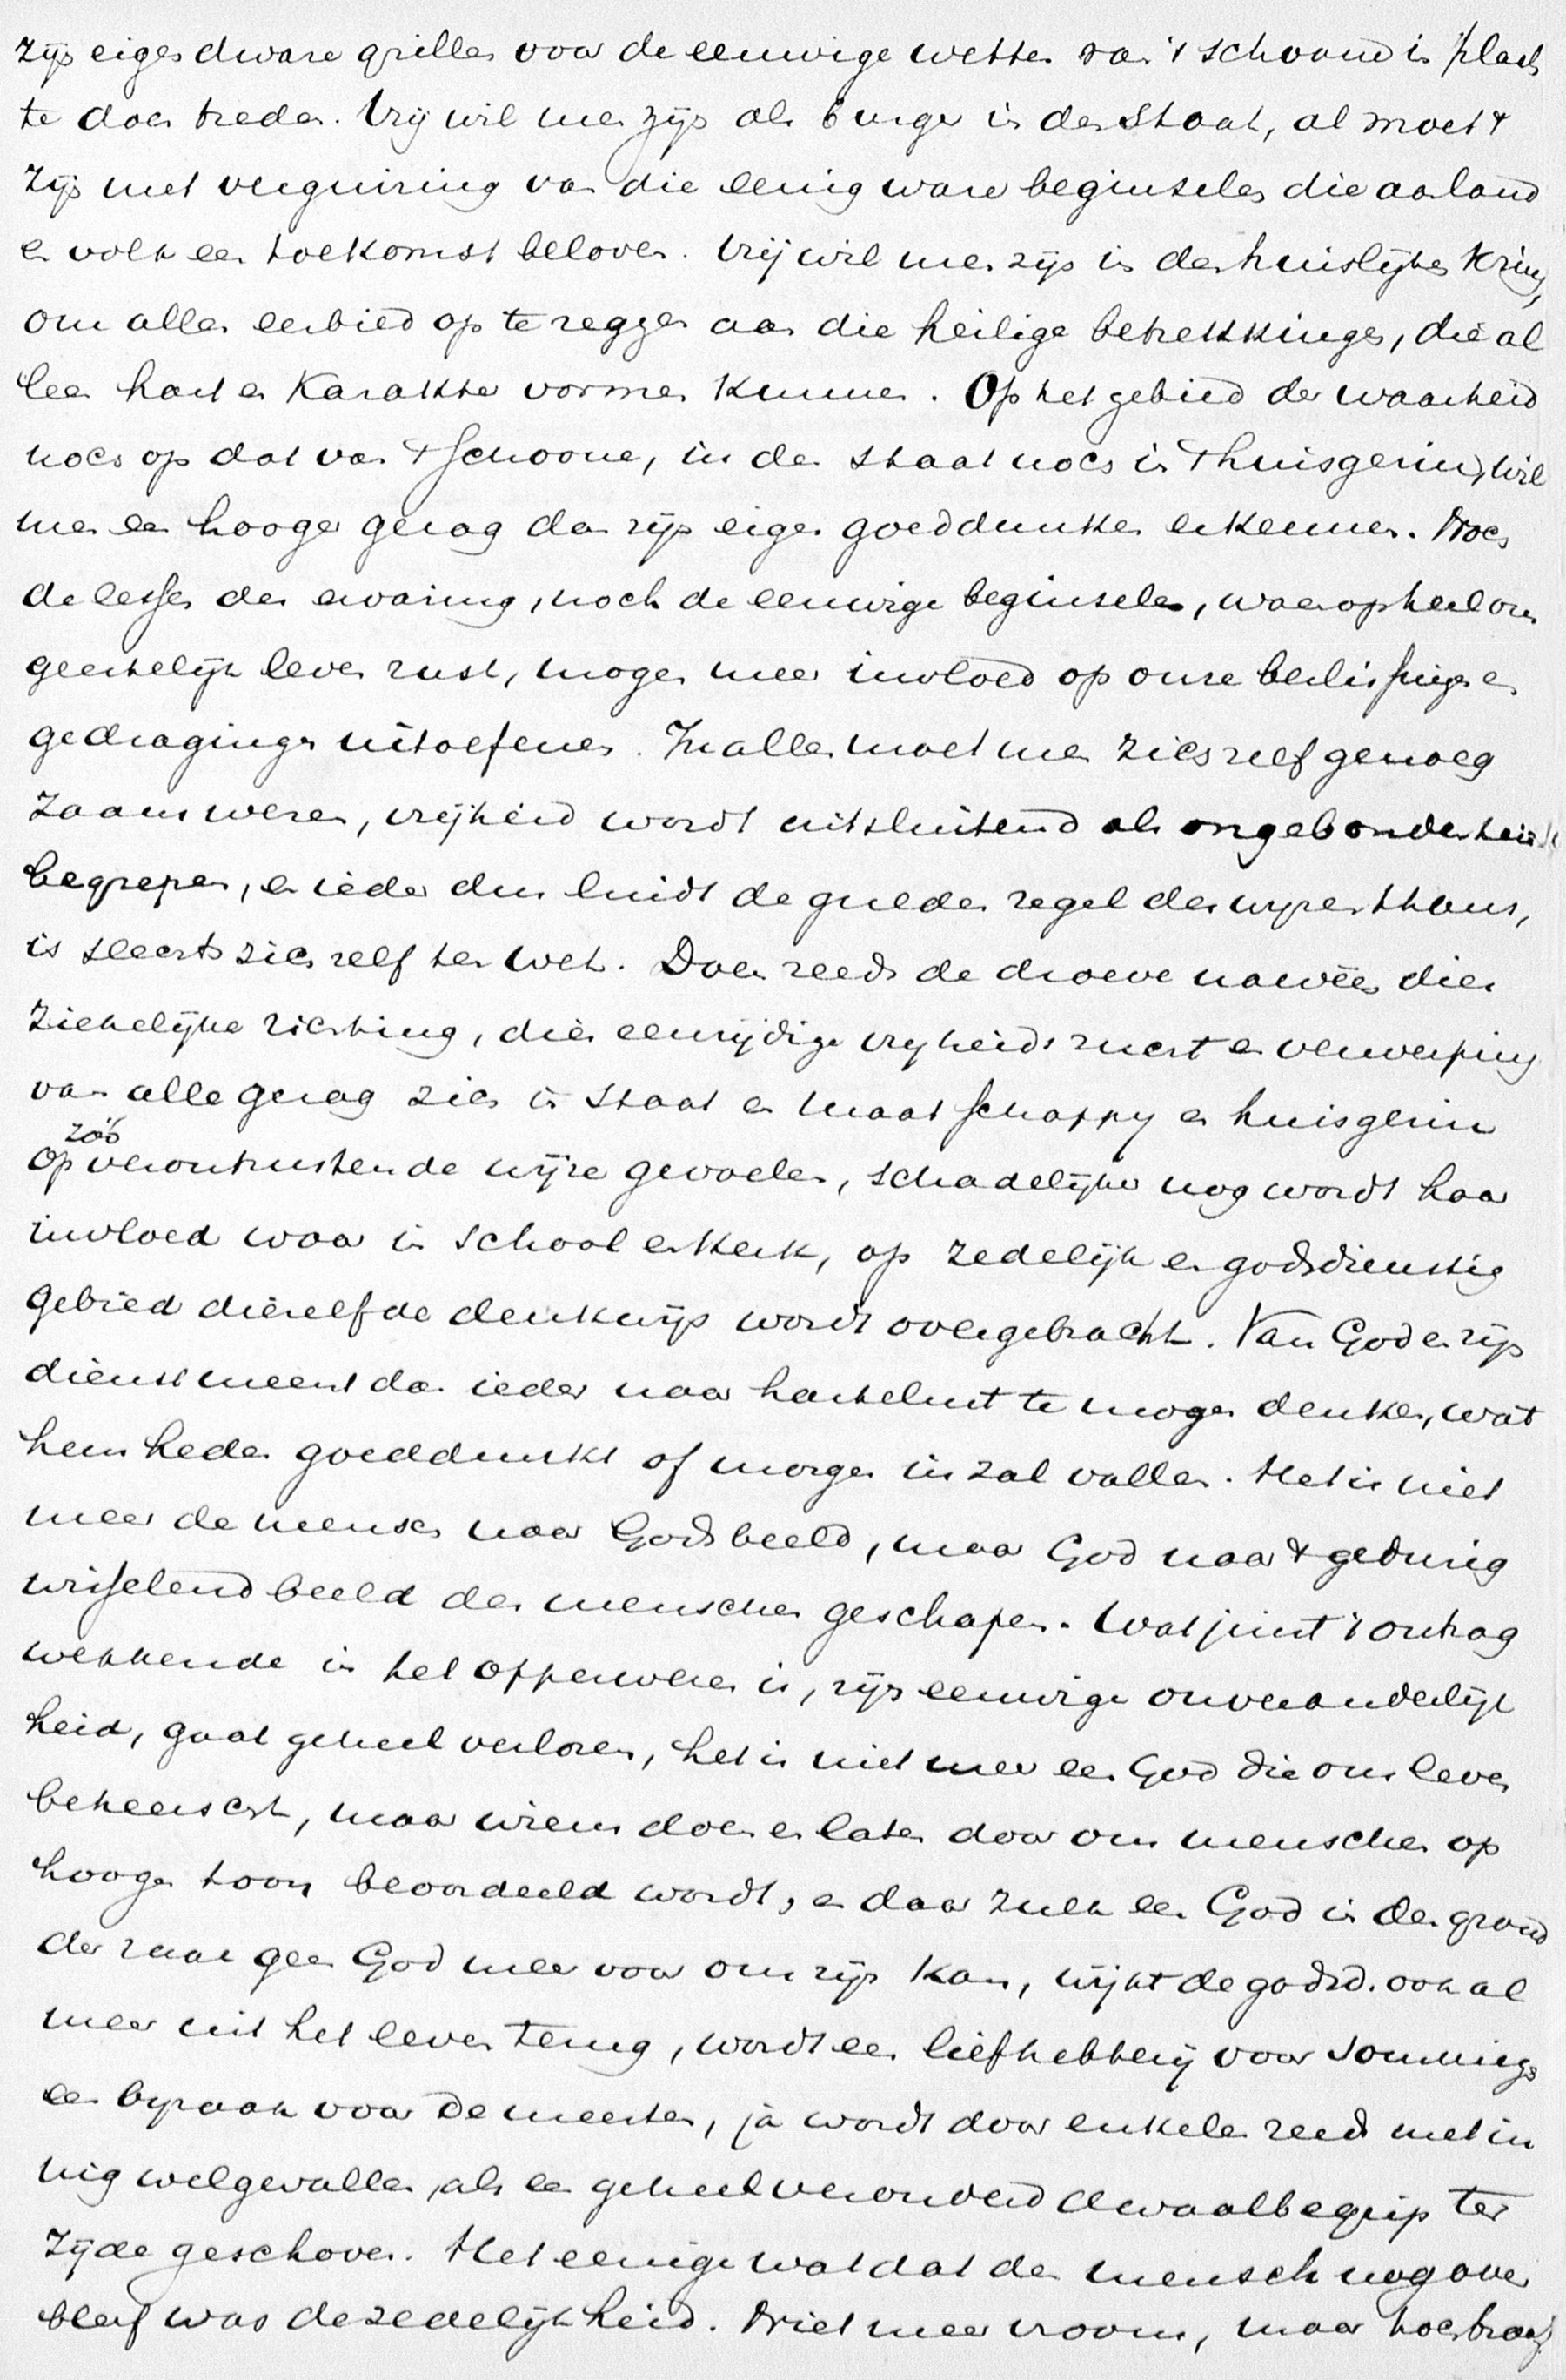 zijn eigen dwaze grillen voor de eeuwige wetten van 't schoone in plaats
te doen treden. Vrij wil men zijn als burger in den Staat, al moet 't
zijn met verguizing van die eenig ware beginselen die aan land
en volk een toekomst beloven. Vrij wil men zijn in den huislijken kring,
om allen eerbied op te zeggen aan die heilige betrekkingen, die al
leen hart en karakter vormen kunnen. Op het gebied der waarheid
noch op dat van 't schoone, in den staat noch in 't huisgezin, wil
men een hooger gezag dan zijn eigen goeddunken erkennen. Noch
de lessen der ervaring, noch de eeuwige beginselen, waarop heel ons
geestelijk leven rust, mogen meer invloed op onze beslissingen en
gedragingen uitoefenen. In alles moet men zich zelf genoeg
zaam wezen, vrijheid wordt uitsluitend als ongebondenheid
begrepen, en ieder dus luidt de gulden regel der wijzen thans,
is slechts zich zelf ten wet. Doen reeds de droeve naweën dier
ziekelijke richting, dier eenzijdige vrijheidszucht en verwerping
van alle gezag zich in Staat en maatschappij en huisgezin
zóó
op verontrustende wijze gevoelen, schadelijker nog wordt haar
invloed waar in school en kerk, op zedelijk en godsdienstig
gebied diezelfde denkwijs wordt overgebracht. Van God en zijn
dienst meent dan ieder naar hartelust te mogen denken, wat
hem heden goeddunkt of morgen in zal vallen. Het is niet
meer de mensch naar Gods beeld, maar God naar 't gedurig
wisselend beeld der menschen geschapen. Wat juist 't ontzag
wekkende in het opperwezen is, zijn eeuwige onveranderlijk
heid, gaat geheel verloren, het is niet meer een God die ons leven
beheerscht, maar wiens doen en laten door ons menschen op
hoogen toon beoordeeld wordt, en daar zulk een God in den grond
der zaak geen God meer voor ons zijn kan, wijkt de godsd. ook al
meer uit het leven terug, wordt een liefhebberij voor sommigen
een bijzaak voor de meesten, ja wordt door enkelen reeds met in
nig welgevallen als een geheel verouderd dwaalbegrip ter
zijde geschoven. Het eenige wat dat den mensch nog over
bleef was de zedelijkheid. Niet meer vroom, maar toch braaf